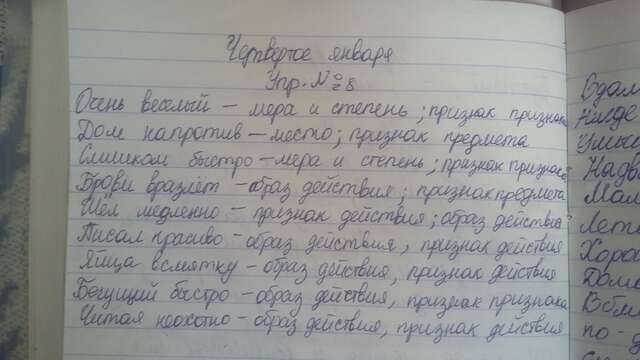 Четвертое января
Упр. № 8
Очень веселый – мера и степень; признак признака
Дом напротив – место; признак предмета
Слишком быстро – мера и степень; признак признака
Брови вразлёт – образ действия; признак предмета
Шёл медленно – признак действия; образ действия
Писал красиво – образ действия, признак действия
Яйца всмятку – образ действия, признак действия
Бегущий быстро – образ действия, признак признака
Читая неохотно – образ действия, признак действия
Нигде
Надв
Мал
Лет
по-